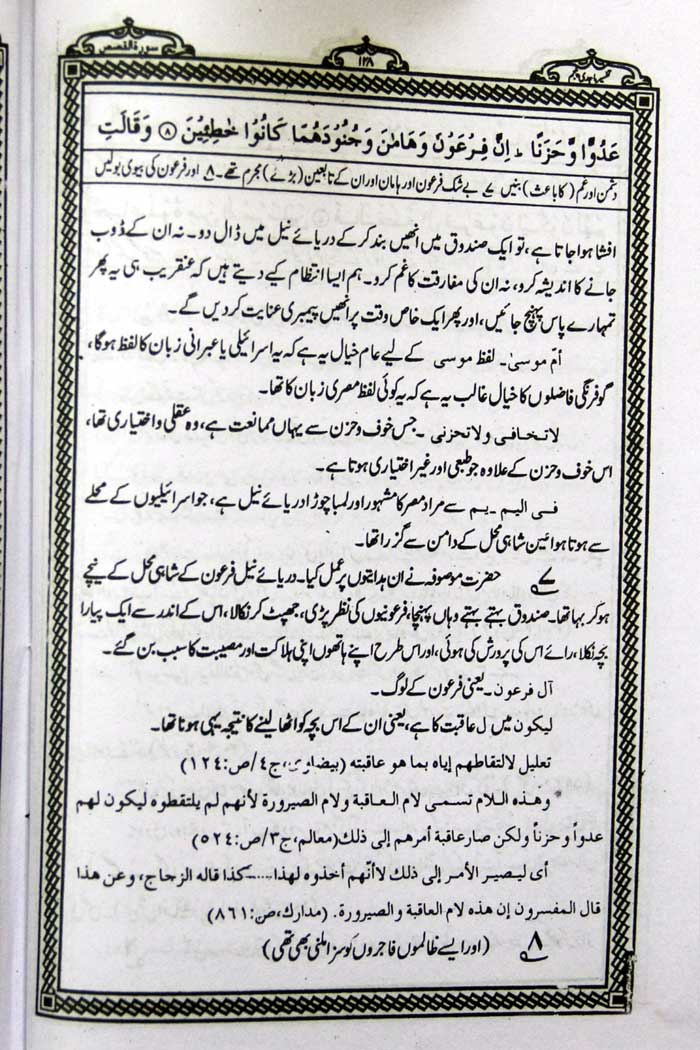 سورة القصص
۱۲۸
تفسیر ماجدی پنجم
عَدُوًّا وَّحَزَنًا ؕ اِنَّ فِرْعَوْنَ وَهَامٰنَ وَجُنُوْدَهُمَا كَانُوْا خٰطِـِٕیْنَ ۸ وَقَالَتِ
دشمن اور غم (کا باعث) بنیں ۷ بے شک فرعون اور ہامان اور ان کے تابعین (بڑے) مجرم تھے۔ ۸ اور فرعون کی بیوی بولیں
افشا ہوا جاتا ہے، تو ایک صندوق میں انھیں بند کرکے دریائے نیل میں ڈال دو۔ نہ ان کے ڈوب
جانے کا اندیشہ کرو، نہ ان کی مفارقت کا غم کرو۔ ہم ایسا انتظام کیے دیتے ہیں کہ عنقریب ہی یہ پھر
تمہارے پاس پہنچ جائیں، اور پھر ایک خاص وقت پر انھیں پیمبری عنایت کردیں گے۔
اُمّ موسیٰ۔ لفظ موسی کے لیے عام خیال یہ ہے کہ یہ اسرائیلی یا عبرانی زبان کا لفظ ہوگا،
گو فرنگی فاضلوں کا خیال غالب یہ ہے کہ یہ کوئی لفظ مصری زبان کا تھا۔
لاتخافی ولاتحزنی۔ جس خوف وحزن سے یہاں ممانعت ہے، وہ عقلی و اختیاری تھا،
اس خوف وحزن کے علاوہ جو طبعی اور غیر اختیاری ہوتا ہے۔
فی الیم۔ یم سے مراد مصر کا مشہور اور لمبا چوڑا دریائے نیل ہے، جو اسرائیلیوں کے محلے
سے ہوتا ہوا عین شاہی محل کے دامن سے گزرا تھا۔
۷ حضرت موصوفہ نے ان ہدایتوں پر عمل کیا۔ دریائے نیل فرعون کے شاہی محل کے نیچے
ہوکر بہا تھا۔ صندوق بہتے بہتے وہاں پہنچا، فرعونیوں کی نظر پڑی، جھپٹ کر نکالا، اس کے اندر سے ایک پیارا
بچہ نکلا، رائے اس کی پرورش کی ہوئی، اور اس طرح اپنے ہاتھوں اپنی ہلاکت اور مصیبت کا سبب بن گئے۔
آل فرعون۔ یعنی فرعون کے لوگ۔
لیکون میں ل عاقبت کا ہے، یعنی ان کے اس بچہ کو اٹھالینے کا نتیجہ یہی ہونا تھا۔
تعليل لالتقاطهم إياه بما هو عاقبته (بيضاوي، ج٤/ص:١٢٤)
وهذه اللام تسمى لام العاقبة ولام الصيرورة لأنهم لم يلتقطوه ليكون لهم
عدواً وحزناً ولكن صار عاقبة أمرهم إلى ذلك (معالم، ج٣/ص:٥٢٤)
أى ليصير الأمر إلى ذلك لا أنّهم أخذوه لهذا...... كذا قاله الزجاج، وعن هذا
قال المفسرون إن هذه لام العاقبة والصيرورة. (مدارك، ص:٨٦١)
۸ (اور ایسے ظالموں فاجروں کو سزا ملنی بھی تھی)